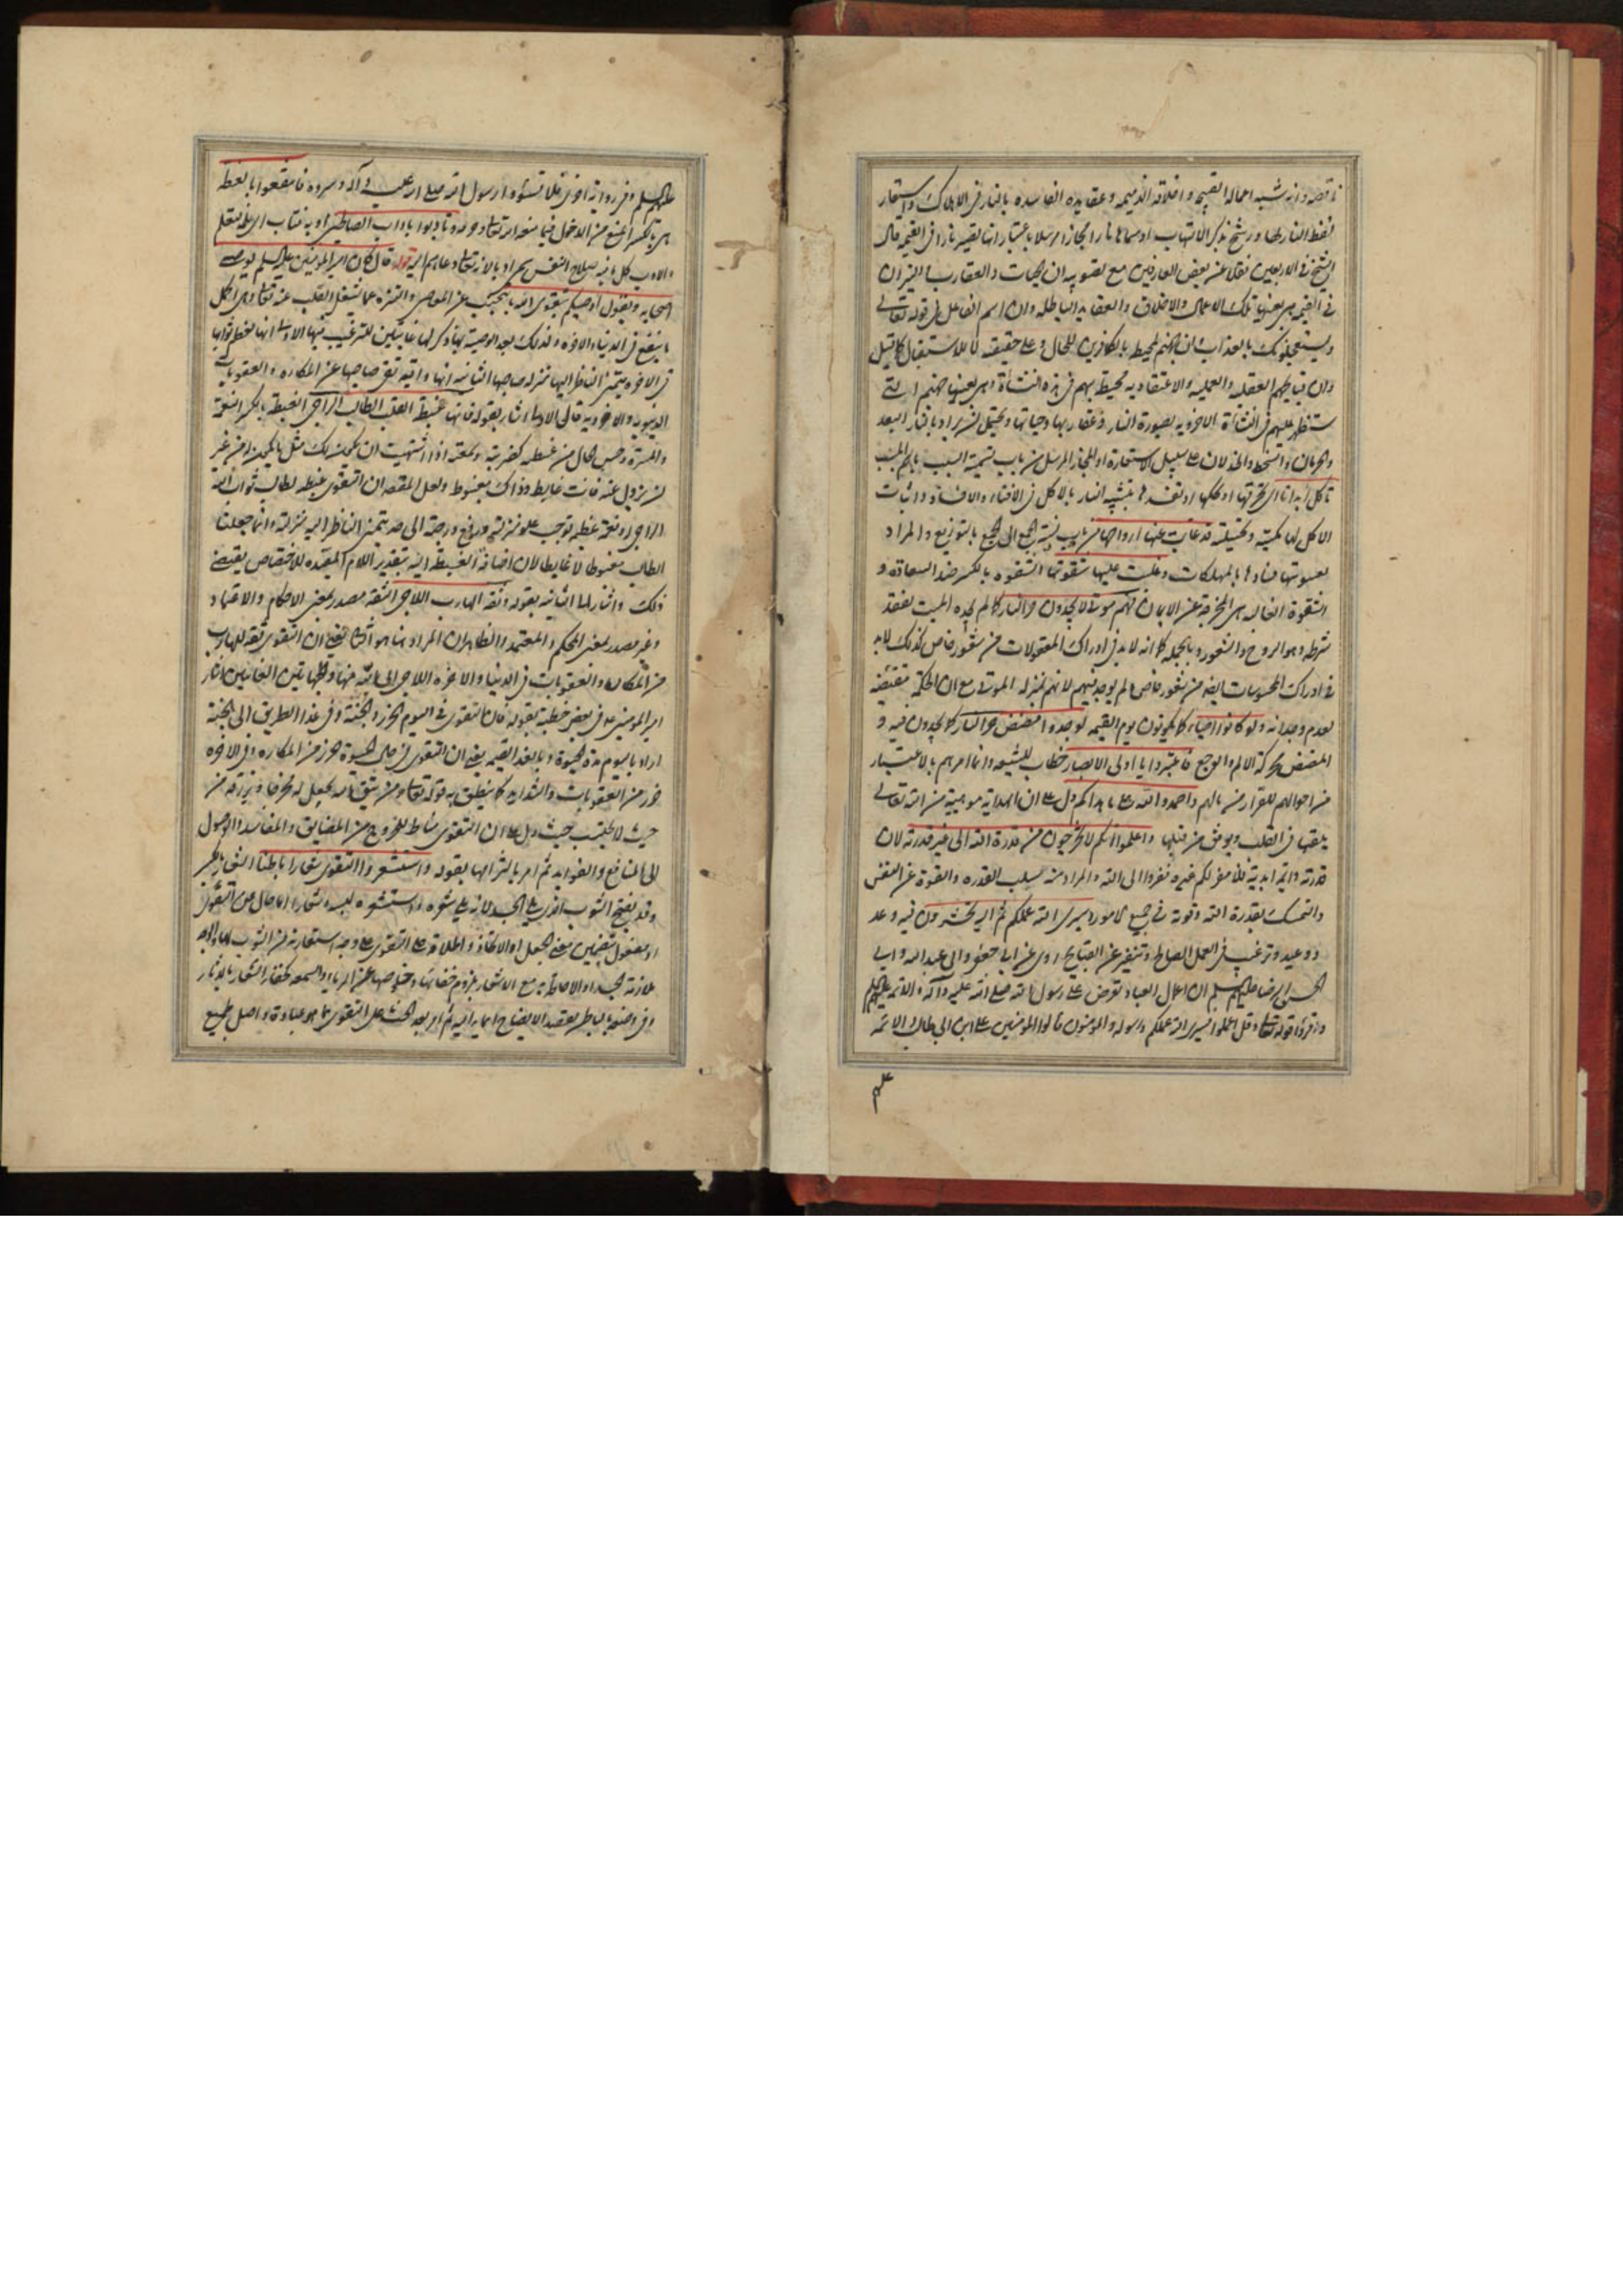 ناقصه وانه شبه اعماله القبيحه واخلاقه الذميمه وعقايده الفاسده بالنار فى الاهلاك واستعار
لفظ النار لها ورشح بذكر الالتهاب او سماها نارا مجازا مرسلا باعتبار انها تصير نارا فى القيمه قال
الشيخ فى الاربعين نقلا عن بعض العارفين مع تصويبه ان الحيات والعقارب والنيران
فى القيمه هى بعينها تلك الاعمال والاخلاق والعقايد الباطله وان اسم الفاعل فى قوله تعالى
ويستعجلونك بالعذاب وان جهنم لمحيطه بالكافرين للحال وعلى حقيقته لا للاستقبال كما قيل
وان قبايحهم الخلقيه والعمليه والاعتقاديه محيطه بهم فى هذه النشاة وهى بعينها جهنم التى
ستظهر عليهم فى النشاة الاخرويه بصورة النار وعقاربها وحياتها ويحتمل ان يراد بالنار البعد
والحرمان والسخط والخذلان على سبيل الاستعارة او المجاز المرسل من باب تسمية السبب باسم المسبب
تاكل ابدانا اى تحرقها او تهلكها او تفسدها بتشبيه النار بالاكل فى الافناء والافساد واثبات
الاكل لها مكنية وتخييلية قد غابت عنها ارواحها من باب نسبة الجمع الى الجمع بالتوزيع والمراد
بغيبوبتها فسادها بالمهلكات وغلبت عليها شقوتها الشقوه بالكسر ضد السعادة و
الشقوة الغالبه هى المخرجة عن الايمان فهم موتى لا يجدون حر النار كما لم يجده الميت لفقد
شرطه وهو الروح والشعور وبالجمله كما انه لا بد فى ادراك المعقولات من شعور خاص كذلك لا بد
فى ادراك المحسوسات ايضا من شعور خاص لم يوجد فيهم لانهم بمنزله الموتى مع ان الحكمة مقتضيه
لعدم وجدانه ولو كانوا احياء كما يكونون يوم القيمه لوجدوا مضض حر النار كما يجدون فيه و
المضض محركة الالم والوجع فاعتبروا يا اولى الابصار خطاب للشيعه وانما امرهم بالاعتبار
من احوالهم للفرار من مالهم واحمدوا الله على ما هداكم دل على ان الهداية موهبية من الله تعالى
يلقيها فى القلب ويوفق من قبلها واعلموا انكم لا تخرجون من قدرة الله الى غير قدرته لان
قدرته دائمه ابدية فلا مفر لكم عنه ففروا الى الله والمراد منه سلب القدره والقوة عن النفس
والتمسك بقدرة الله وقوته فى جميع الامور وسيرى الله عملكم ثم اليه تحشرون فيه وعد
ووعيد وترغيب فى العمل الصالح وتنفير عن القبايح روى عن ابى جعفر وابى عبد الله وابى
الحسن الرضا عليهم السلم ان اعمال العباد تعرض على رسول الله صلى الله عليه وآله والائمه عليهم السلم
واقرؤا قوله تعالى وقل اعملوا فسيرى الله عملكم ورسوله والمؤمنون قالوا المؤمنين على ابن ابى طالب والائمه
عليهم
عليهم السلم وفى رواية اخرى فلا تسؤوا رسول الله صلى الله عليه وآله وسروه فانتفعوا بالعظه
هى بالكسر المنع من الدخول فيما منعه الله تعالى وحرمه وتادبوا باداب الصالحين
والادب كل ما فيه صلاح النفس قوله قال كان امير المؤمنين عليه السلم يوصى
اصحابه ويقول اوصيكم بتقوى الله بالتجنب عن المعاصى والتنزه عما يشغل القلب عنه تعالى
ما ينفع فى الدنيا والاخره ولذلك بعد الوصية بها ذكر لها غايتين للترغيب فيها الاولى انها
فى الاخرة يتمنى الناظر اليها منزله صاحبها الثانيه انها واقية تقى صاحبها عن المكاره والعقوبات
الدنيويه والاخرويه فالى الاولى اشار بقوله فانها غبطة الطالب الراجى الغبطة بالكسر النعمة
والمسرة وحسن الحال من غبطه كضربه وسمعه اذا اشتهيت ان يكون لك مثل ما يكون له من غير
ان يزول عنه فانت غابط وذاك مغبوط ولعل المقصود ان التقوى غبطه لطالب ثواب الله
الراجى او نعمة عظيمة توجب علو منزلته ورفع درجته الى حد يتمنى الناظر اليه منزلته وانما جعلنا
الطالب مغبوطا لا غابطا لان اضافة الغبطة اليه بتقدير اللام المفيده للاختصاص يقتضى
ذلك واشار الى الثانيه بقوله وثقة الهارب اللاجى الثقة مصدر بمعنى الاحكام والاعتماد
وغير مصدر بمعنى المحكم والمعتمد والظاهر ان المراد هنا هو الثانى يعنى ان التقوى ثقة للهارب
من المكاره والعقوبات فى الدنيا والاخره اللاجى الى الله منها والى هاتين الغايتين اشار
امير المؤمنين ع فى بعض خطبه بقوله فان التقوى فى اليوم الحرز والجنة وفى غد الطريق الى الجنة
اراد باليوم مدة الحيوة وبالغد القيمه يعنى ان التقوى فى حال الحيوة حرز من المكاره وفى الاخره
حرز من العقوبات والشدايد كما ينطق به قوله تعالى ومن يتق الله يجعل له مخرجا ويرزقه من
حيث لا يحتسب حيث دل على ان التقوى مناط للخروج من المضايق والمفاسد والوصول
الى المنافع والفوايد ثم امر بالتزامها بقوله واستشعروا التقوى شعارا باطنا الشعار بالكسر
وقد يفتح الثوب الذى يلى الجسد لانه يلى شعره واستشعره لبسه وشعارا اما حال من التقوى
او مفعول بتضمين معنى الجعل او الاتخاذ واطلاقه على التقوى على وجه استعارته من الثوب
ملازمة الجسد او الاحاطة به مع الاشعار بلزوم خفائها وخلوصها عن الرياء والسمعه كخفاء الشعار بالدثار
وفى وصفه بالباطن لقصد الايضاح ايماء اليه ثم امر بعد الحث على التقوى بما هو عبادة واصل لجميع